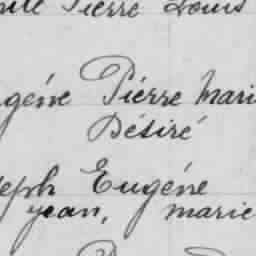 Pierre Louis
gène Pierre Mari
Désiré
seph Eugène
jean, marie